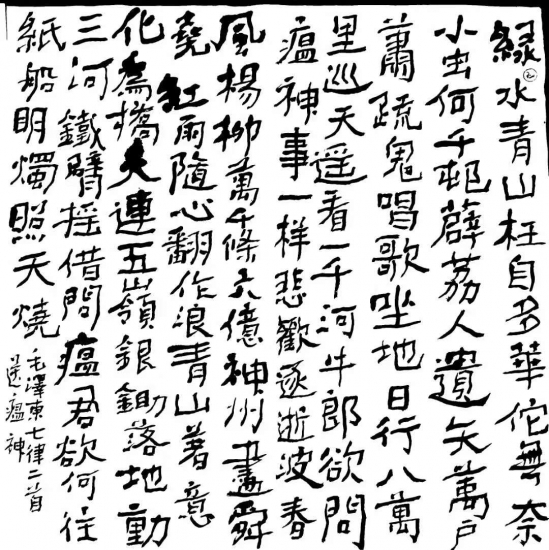 緑水青山枉自多華佗無奈
小虫何千邨薜荔人遺矢萬戶
蕭疏鬼唱歌坐地日行八萬
里巡天遥看一千河牛郎欲問
瘟神事一样悲歡逐逝波春
風楊柳萬千條六億神州盡舜
堯紅雨隨心翻作浪青山著意
化為橋天連五嶺銀鋤落地動
三河鐵臂摇借問瘟君欲何往
紙船明燭照天燒
毛澤東七律二首
送瘟神